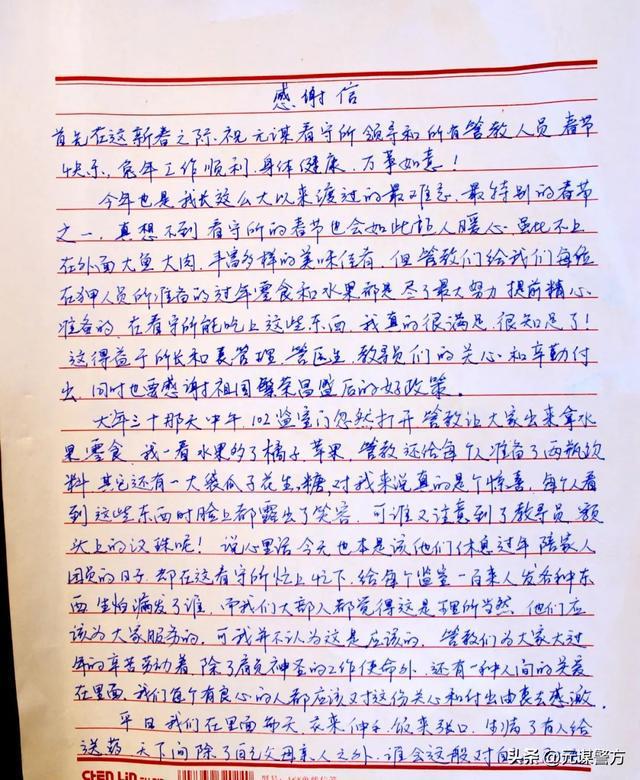 感谢信
首先在这新春之际,祝元谋看守所领导和所有管教人员春节
快乐,兔年工作顺利,身体健康,万事如意!
今年也是我长这么大以来渡过的最难忘、最特别的春节
之一,真想不到看守所的春节也会如此 人暖心,虽比不上
在外面大鱼大肉,丰富多样的美味佳肴,但管教们给我们每位
在押人员所准备的过年零食和水果都是尽了最大努力提前精心
准备的,在看守所能吃上这些东西,我真的很满足,很知足了!
这得益于所长和 管理,管医生,教导员们的关心和辛勤付
出,同时也要感谢祖国繁荣昌盛后的好政策。
大年三十那天中午,102监室门忽然打开,管教让大家出来拿水
果零食,我一看水果 了橘子,苹果,管教还给每个人准备了两瓶饮
料,其它还有一大袋瓜子花生,糖,对我来说真的是个惊喜,每个人看
到这些东西时脸上都露出了笑容,可谁又注意到了教导员额
头上的汉珠呢!说心里话今天也本是该他们休息过年陪家人
团员的日子,却在这看守所忙上忙下,给每个监室一百来人发各种东
西生怕漏发了谁,而我们大部人都觉得这是理所当然,他们应
该为大家服务的,可我并不认为这是应该的,管教们为大家大过
年的辛苦劳动着,除了肩负神圣的工作使命外,还有一种人间的关爱
在里面,我们每个有良心的人都应该对这份关心和付出由衷去感激。
平日我们在里面每天衣来伸手,饭来张口,生病了有人给
送药,天下间除了自己父母亲人之外,谁会这般对
头条 @元谋警方
Chen Lin